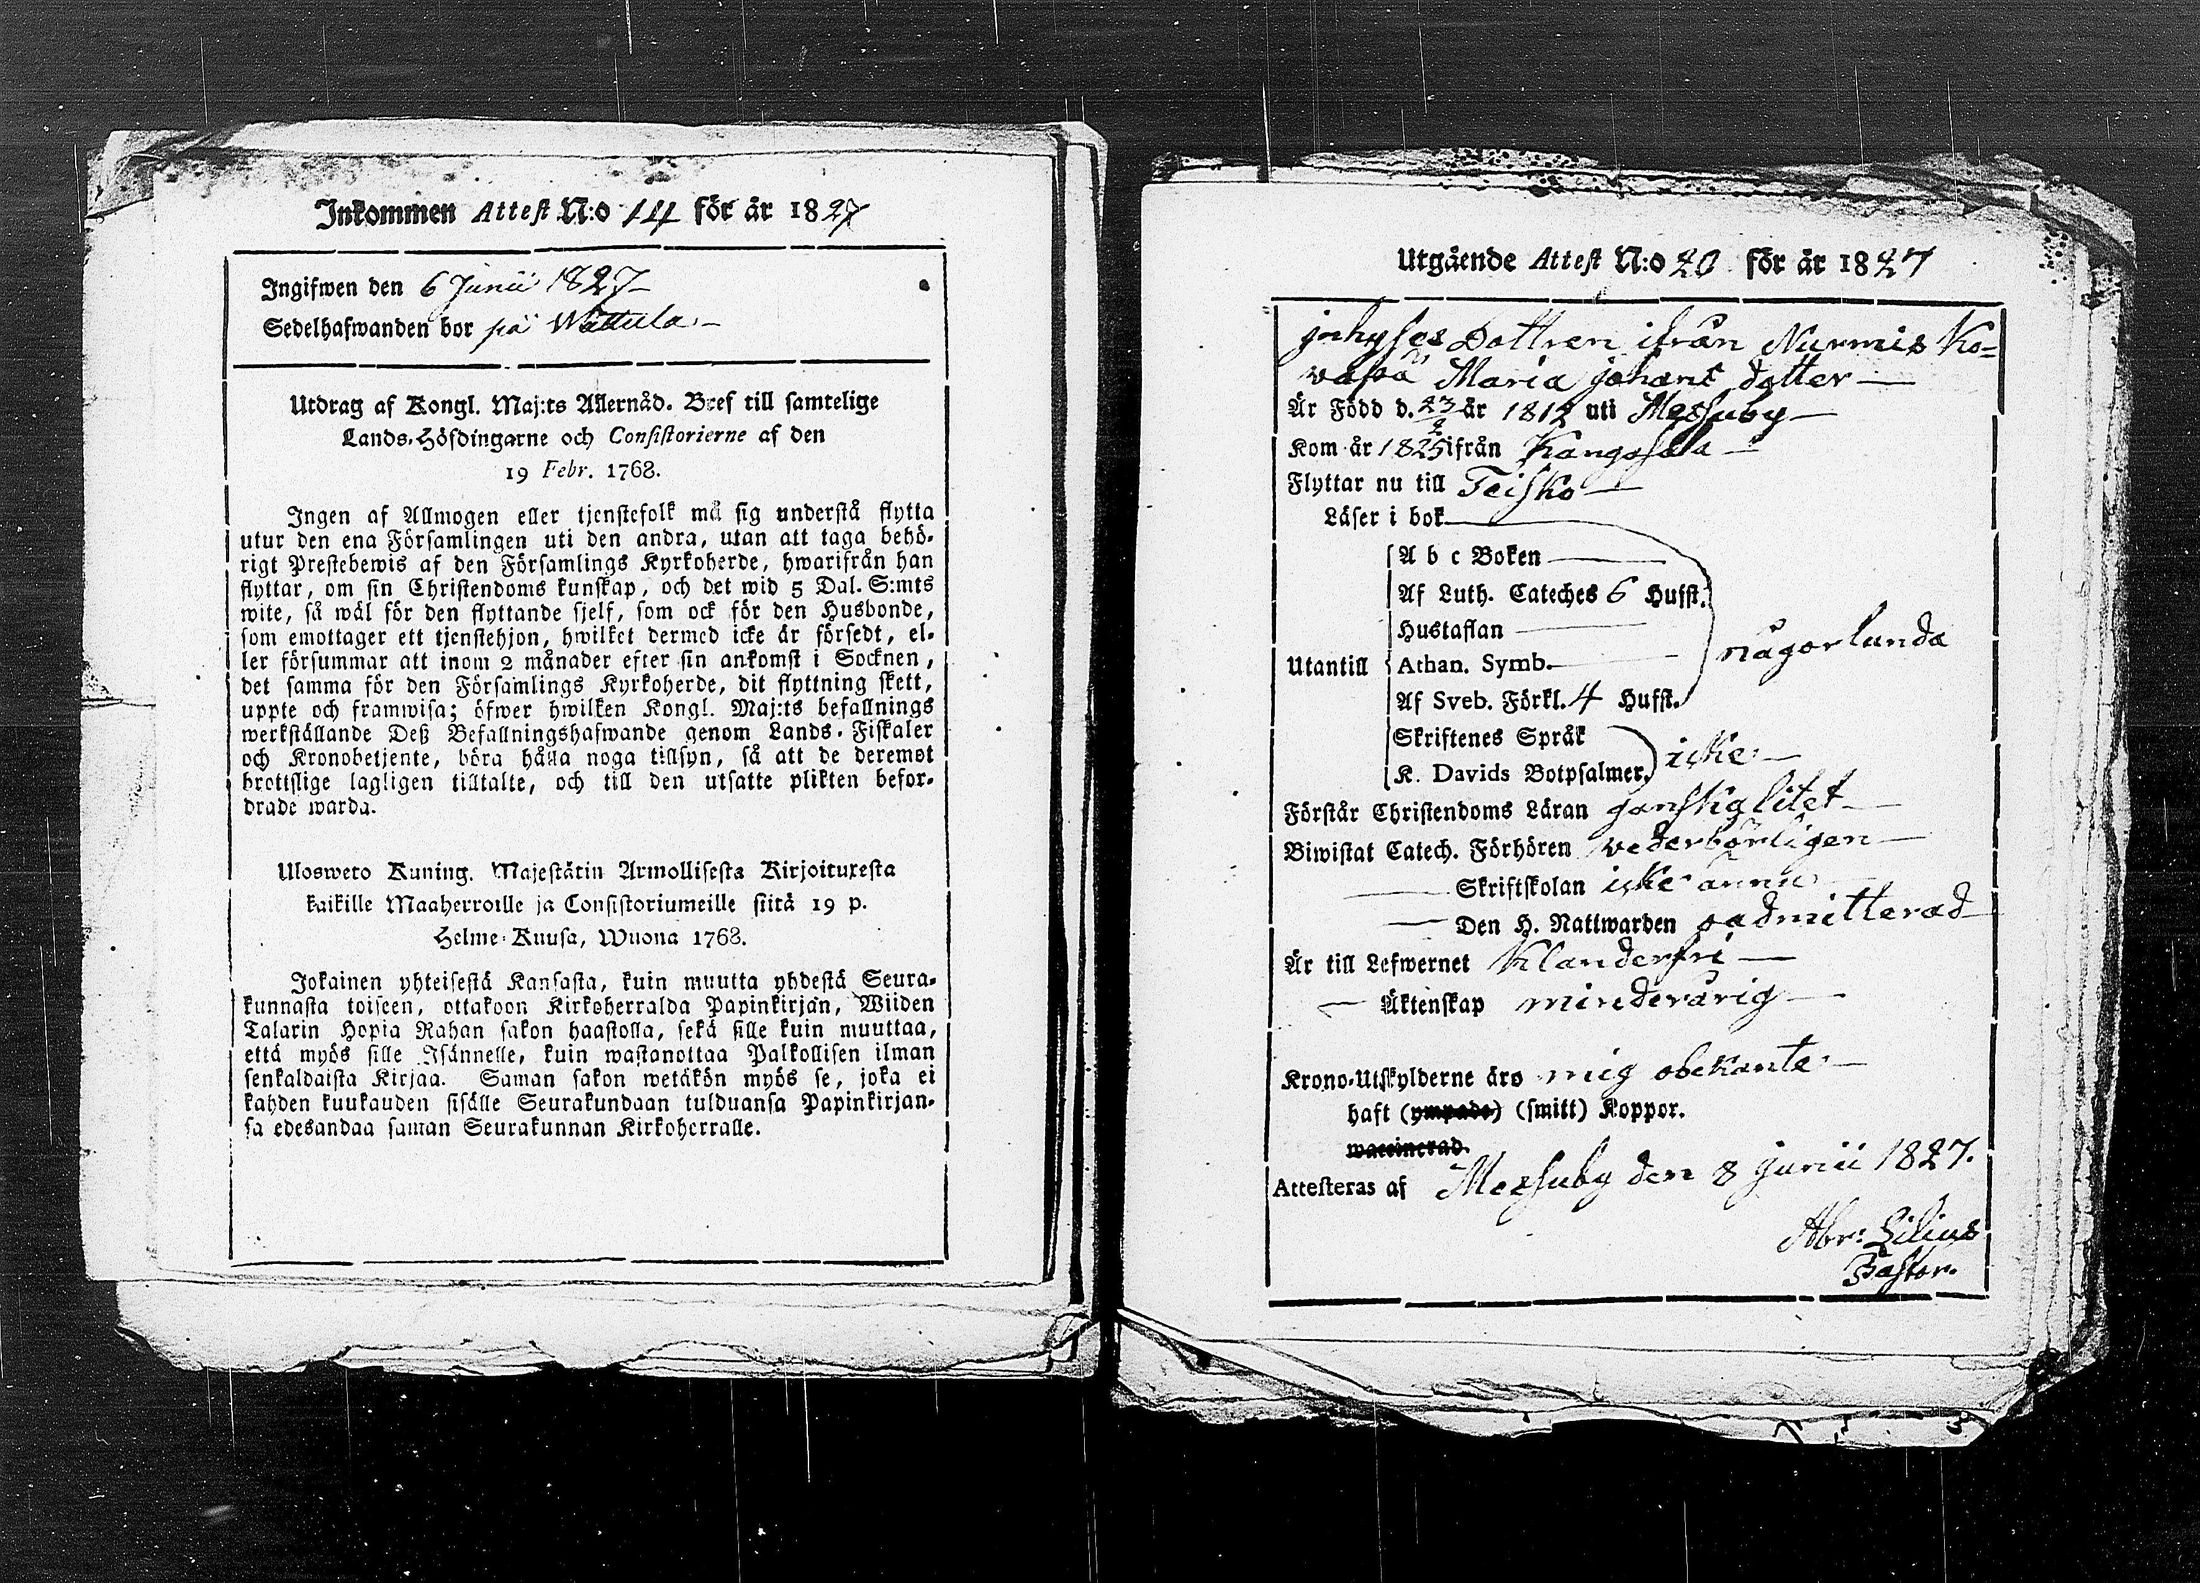 Inkommen Attest N:o 14 för år 1827
Ingifwen den 6 Junii 1827
Sedelhafwanden bor på Wattula
Utdrag af Kongl. Maj:ts Allernåd. Bref till samtelige
Lands-Höfdingarne och Consistorierne af den
19 Febr. 1768.
Ingen af Allmogen eller tjenstefolk må sig understå flytta
utur den ena Församlingen uti den andra, utan att taga behö-
rigt Prestebewis af den Församlings Kyrkoherde, hwarifrån han
flyttar, om sin Christendoms kunskap, och det wid 5 Dal. S:mts
wite, så wäl för den flyttande sjelf, som ock för den Husbonde,
som emottager ett tjenstehjon, hwilket dermed icke är försedt, el-
ler försummar att inom 2 månader efter sin ankomst i Socknen,
det samma för den Församlings Kyrkoherde, dit flyttning skett,
uppte och framwisa; öfwer hwilken Kongl. Maj:ts befallnings
werkställande Deß Befallningshafwande genom Lands-Fiskaler
och Kronobetjente, böra hålla noga tillsyn, så att de deremot
brottslige lagligen tilltalte, och till den utsatte plikten befor-
drade warda.
Ulosweto Kuning. Majestätin Armollisesta Kirjoituxesta
kaikille Maaherroille ja Consistoriumeille siitä 19 p.
Helme-Kuusa, Wuona 1768.
Jokainen yhteisestä Kansasta, kuin muutta yhdestä Seura-
kunnasta toiseen, ottakoon Kirkoherralda Papinkirjan, Wiiden
Talarin Hopia Rahan sakon haastolla, sekä sille kuin muuttaa,
että myös sille Isännelle, kuin wastanottaa Palkollisen ilman
senkaldaista Kirjaa. Saman sakon wetäkön myös se, joka ei
kahden kuukauden sisälle Seurakundaan tulduansa Papinkirjan-
sa edesandaa saman Seurakunnan Kirkoherralle.
Utgående Attest N:o 20 för år 1827
inhyses Dottren ifrån Nurmis Ko-
wapä Maria Johans dotter
Är Född d. 23/2 år 1812 uti Messuby
Kom år 1825 ifrån Kangasala
Flyttar nu till Teisko
Läser i bok
A b c Boken
Af Luth. Cateches 6 Hufst.
Hustaflan
någorlunda
Utantill Athan. Symb.
Af Sveb. Förkl. 4 Hufst.
Skriftenes Språk
icke
K. Davids Botpsalmer.
Förstår Christendoms Läran ganska litet
Biwistat Catech. Förhören wederbörligen
Skriftskolan icke ännu
Den H. Nattwarden oadmitterad
Är till Lefwernet Klanderfri
Äktenskap minderårig
Krono-Utskylderne äro mig obekante
haft (ympade) (smitt) Koppor.
waccinerad.
Attesteras af Messuby den 8 Junii 1827.
Abr: Lilius
Pastor.